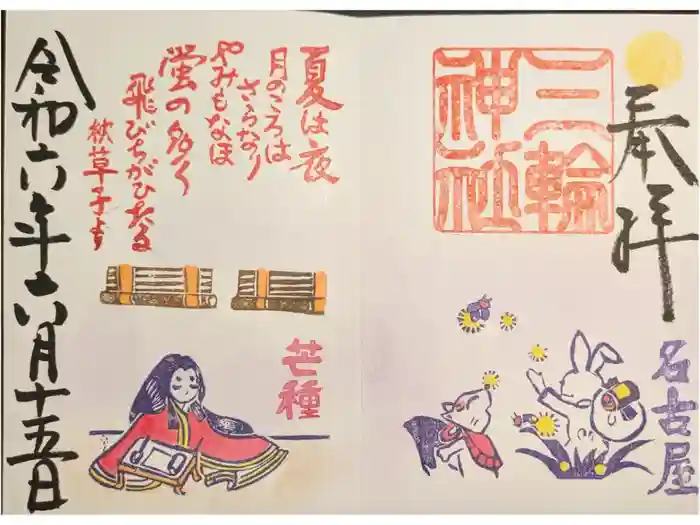 奉拝
三輪
神社
名古屋
夏は夜
月のころは
さらなり
やみもなほ
蛍の多く
飛びちがひたる
枕草子より
芒種
令和六年六月十五日